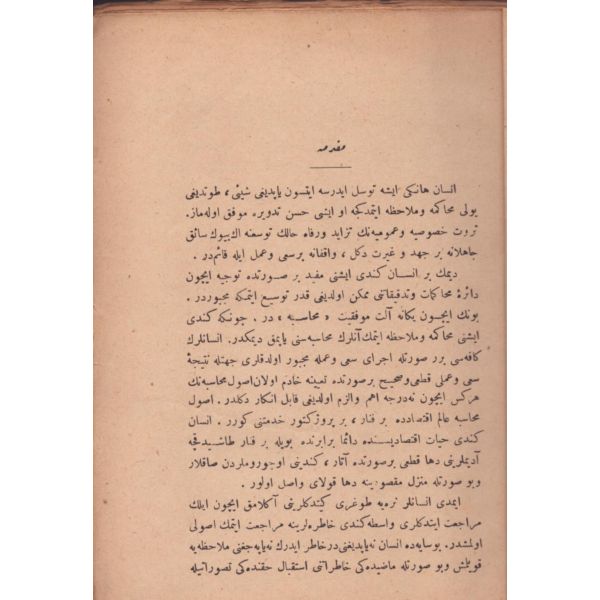 مقدمه
انسان هانكی ايشه توسل ايدرسه ايتسون ياپديغی شيئی ، طوتديغی
يولی محاكمه وملاحظه ايتمدكجه او ايشی حسن تدويره موفق اوله‌ماز.
ثروت خصوصيه وعموميه‌نك تزايد ورفاه حالك توسعنه اك‌بيوك سائق
جاهلانه بر جهد و غيرت دكل ، واقفانه برسعی وعمل ايله قائم‌در .
ديمك بر انسان كندی ايشنی مفيد بر صورتده توجيه ايچون
دائرۀ محاكمات وتدقيقاتنی ممكن اولديغی قدر توسيع ايتمكه مجبوردر .
بونك ايچون يكانه آلت موفقيت « محاسبه » در . چونكه كندی
ايشنی محاكمه وملاحظه ايتمك آنلرك محاسبه‌سنی ياپمق ديمكدر. انسانلرك
كافه‌سی برر صورتله اجرای سعی وعمله مجبور اولدقلری جهتله نتيجۀ
سعی وعملی قطعی وصحيح برصورتده تعيينه خادم اولان اصول محاسبه‌نك
هركس ايچون نه‌درجه اهم والزم اولديغی قابل انكار دكلدر. اصول
محاسبه عالم اقتصادده بر فنار ، بر پروژكتور خدمتنی كورر . انسان
كندی حيات اقتصاديسنده دائما برابرنده بويله بر فنار طاشيدقجه
آديملرينی دها قطعی برصورتده آتار ، كندينی اوچوروملردن صاقلار
وبو صورتله منزل مقصودينه دها قولای واصل اولور .
ايمدی انسانلر نره‌يه طوغری كيتدكلرينی آكلامق ايچون ايلك
مراجعت ايتدكلری واسطه كندی خاطره‌لرينه مراجعت ايتمك اصولی
اولمشدر. بوسايه‌ده انسان نه‌ياپديغنی درخاطر ايدرك نه‌ياپه‌جغنی ملاحظه‌يه
قويلمش وبو صورتله ماضيده‌كی خاطراتنی استقبال حقنده‌كی تصوراتيله